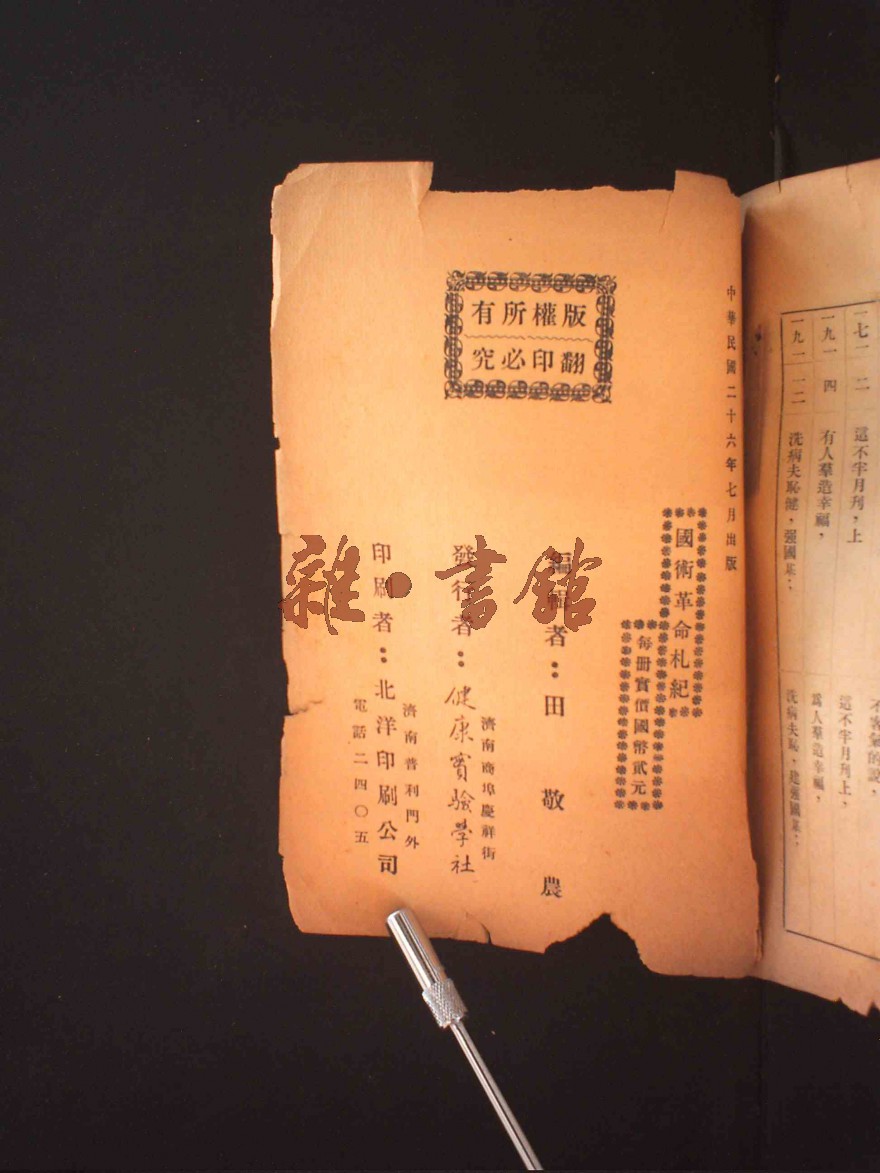 中華民國二十六年七月出版
國術革命札紀
每冊實價國幣貳元
版權所有
翻印必究
編輯者：田敬農
濟南商埠慶祥街
發行者：健康實驗學社
濟南普利門外
印刷者：北洋印刷公司
電話二四〇五
雜·書館
這不牢月刋，上
一九一 四 有人羣造幸福，
爲人羣造幸福，
一九一 一二 洗病夫恥健，强國基：
洗病夫恥，建强國基：
一七一 二
這不牢月刋上，